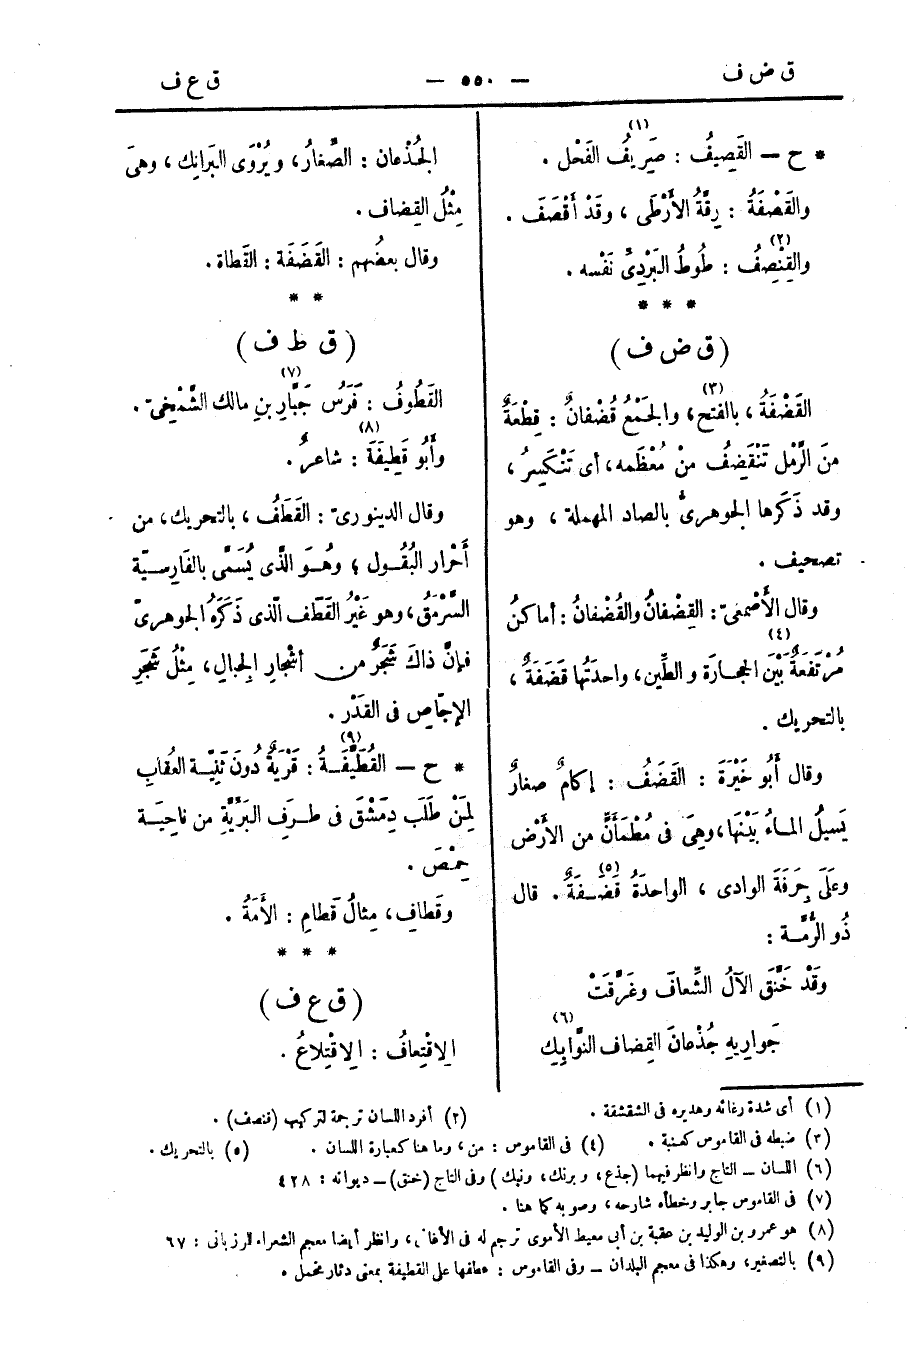 ق ض ف
— ٥٥٠ —
ق ع ف
* ح — القَصِيفُ : صَرِيفُ (١) الفَحْل .
والقَصْفَةُ : رِقَّةُ الأَرْطَى ، وقَدْ أَقْصَفَ .
والقِنْصِفُ (٢) : طُوطُ البَرْدِىّ نَفْسه .
* * *
( ق ض ف )
القَضْفَةُ ، بالفتح (٣) ، والجَمْعُ قُضْفانٌ : قِطْعَةٌ
مِنَ الرَّمْل تَنْقَضِف مِنْ مُعْظَمه ، أى تَنْكَسِرُ ،
وقد ذَكَرها الجوهرىُّ بالصاد المهملة ، وهو
تصحيف .
وقال الأَصْمَعِىّ : القِضْفانُ والقُضْفانُ : أماكنُ
مُرْتَفَعةٌ بَيْنَ (٤) الحِجارَة والطِّين ، واحدَتُها قَضَفَةٌ ،
بالتحريك .
وقال أَبُو خَيْرَةَ : القَضَفُ : إكامٌ صغارٌ
يَسيلُ المــاءُ بَيْنَها ، وهِىَ فى مُطْمَأَنٍّ من الأَرْض
وعَلَى جِرَفَةَ الوادى ، الواحدَةُ قَضَـفَةٌ (٥) . قال
ذُو الرُّمَّـة :
وقَدْ خَنَّقَ الآلُ الشِّعافَ وغَرَّقَتْ
جَوارِيهِ جُذْعانَ القِضافِ النَّوابِكِ (٦)
الجُذْعان : الصِّغارُ ، ويُرْوَى البَرانِك ، وهىَ
مِثْلُ القِضاف .
وقال بعضُهم : القَضَفَة : القَطاة .
* *
( ق ط ف )
القَطُوفُ : فَرَسُ جَبَّارِ (٧) بنِ مالك الشَّمْخِىّ .
وأَبُو قَطِيفَةَ (٨) : شاعرٌ .
وقال الدينورىّ : القَطَفُ ، بالتحريك ، من
أَحْرار البُقُـول ، وهُـوَ الَّذى يُسَمَّى بالفَارِسـيّة
السَّرْمَقُ ، وهو غَيْرُ القَطَف الّذى ذَكَرَهُ الجوهرىّ
فإنَّ ذاكَ شَجَرٌ من أشْجارِ الجبالِ ، مِثْلُ شَجَرِ
الإجّاصِ فى القَدْر .
* ح — القُطَيِّفَـةُ (٩) : قَرْيَةٌ دُونَ ثَنِيَّـة العُقابِ
لِمَنْ طَلَب دِمَشْقَ فى طَـرَفِ البَرِّيَّةِ من ناحِيَـة
حِمْصَ .
وقَطافِ ، مِثالُ قَطامِ : الأَمَةُ .
* * *
( ق ع ف )
الاِقْتِعافُ : الاِقْتِلاعُ .
(١) أى شدة رغائه وهديره فى الشقشقة .
(٢) أفرد اللسان ترجمة لتركيب (قنصف) .
(٣) ضبطه فى القاموس كعنبة . (٤) فى القاموس : من ، وما هنا كعبارة اللسان . (٥) بالتحريك .
(٦) اللسان — التاج وانظر فيهما (جذع ، وبرنك ، ونبك) وفى التاج (خنق) — ديوانه : ٤٢٨
(٧) فى القاموس جابر وخطأه شارحه ، وصوبه كما هنا .
(٨) هو عمرو بن الوليد بن عقبة بن أبى معيط الأموى ترجم له فى الأغانى ، وانظر أيضا معجم الشعراء للمرزبانى : ٦٧
(٩) بالتصغير ، وهكذا فى معجم البلدان — وفى القاموس : عطفها على القطيفة بمعنى دثار مخمل .